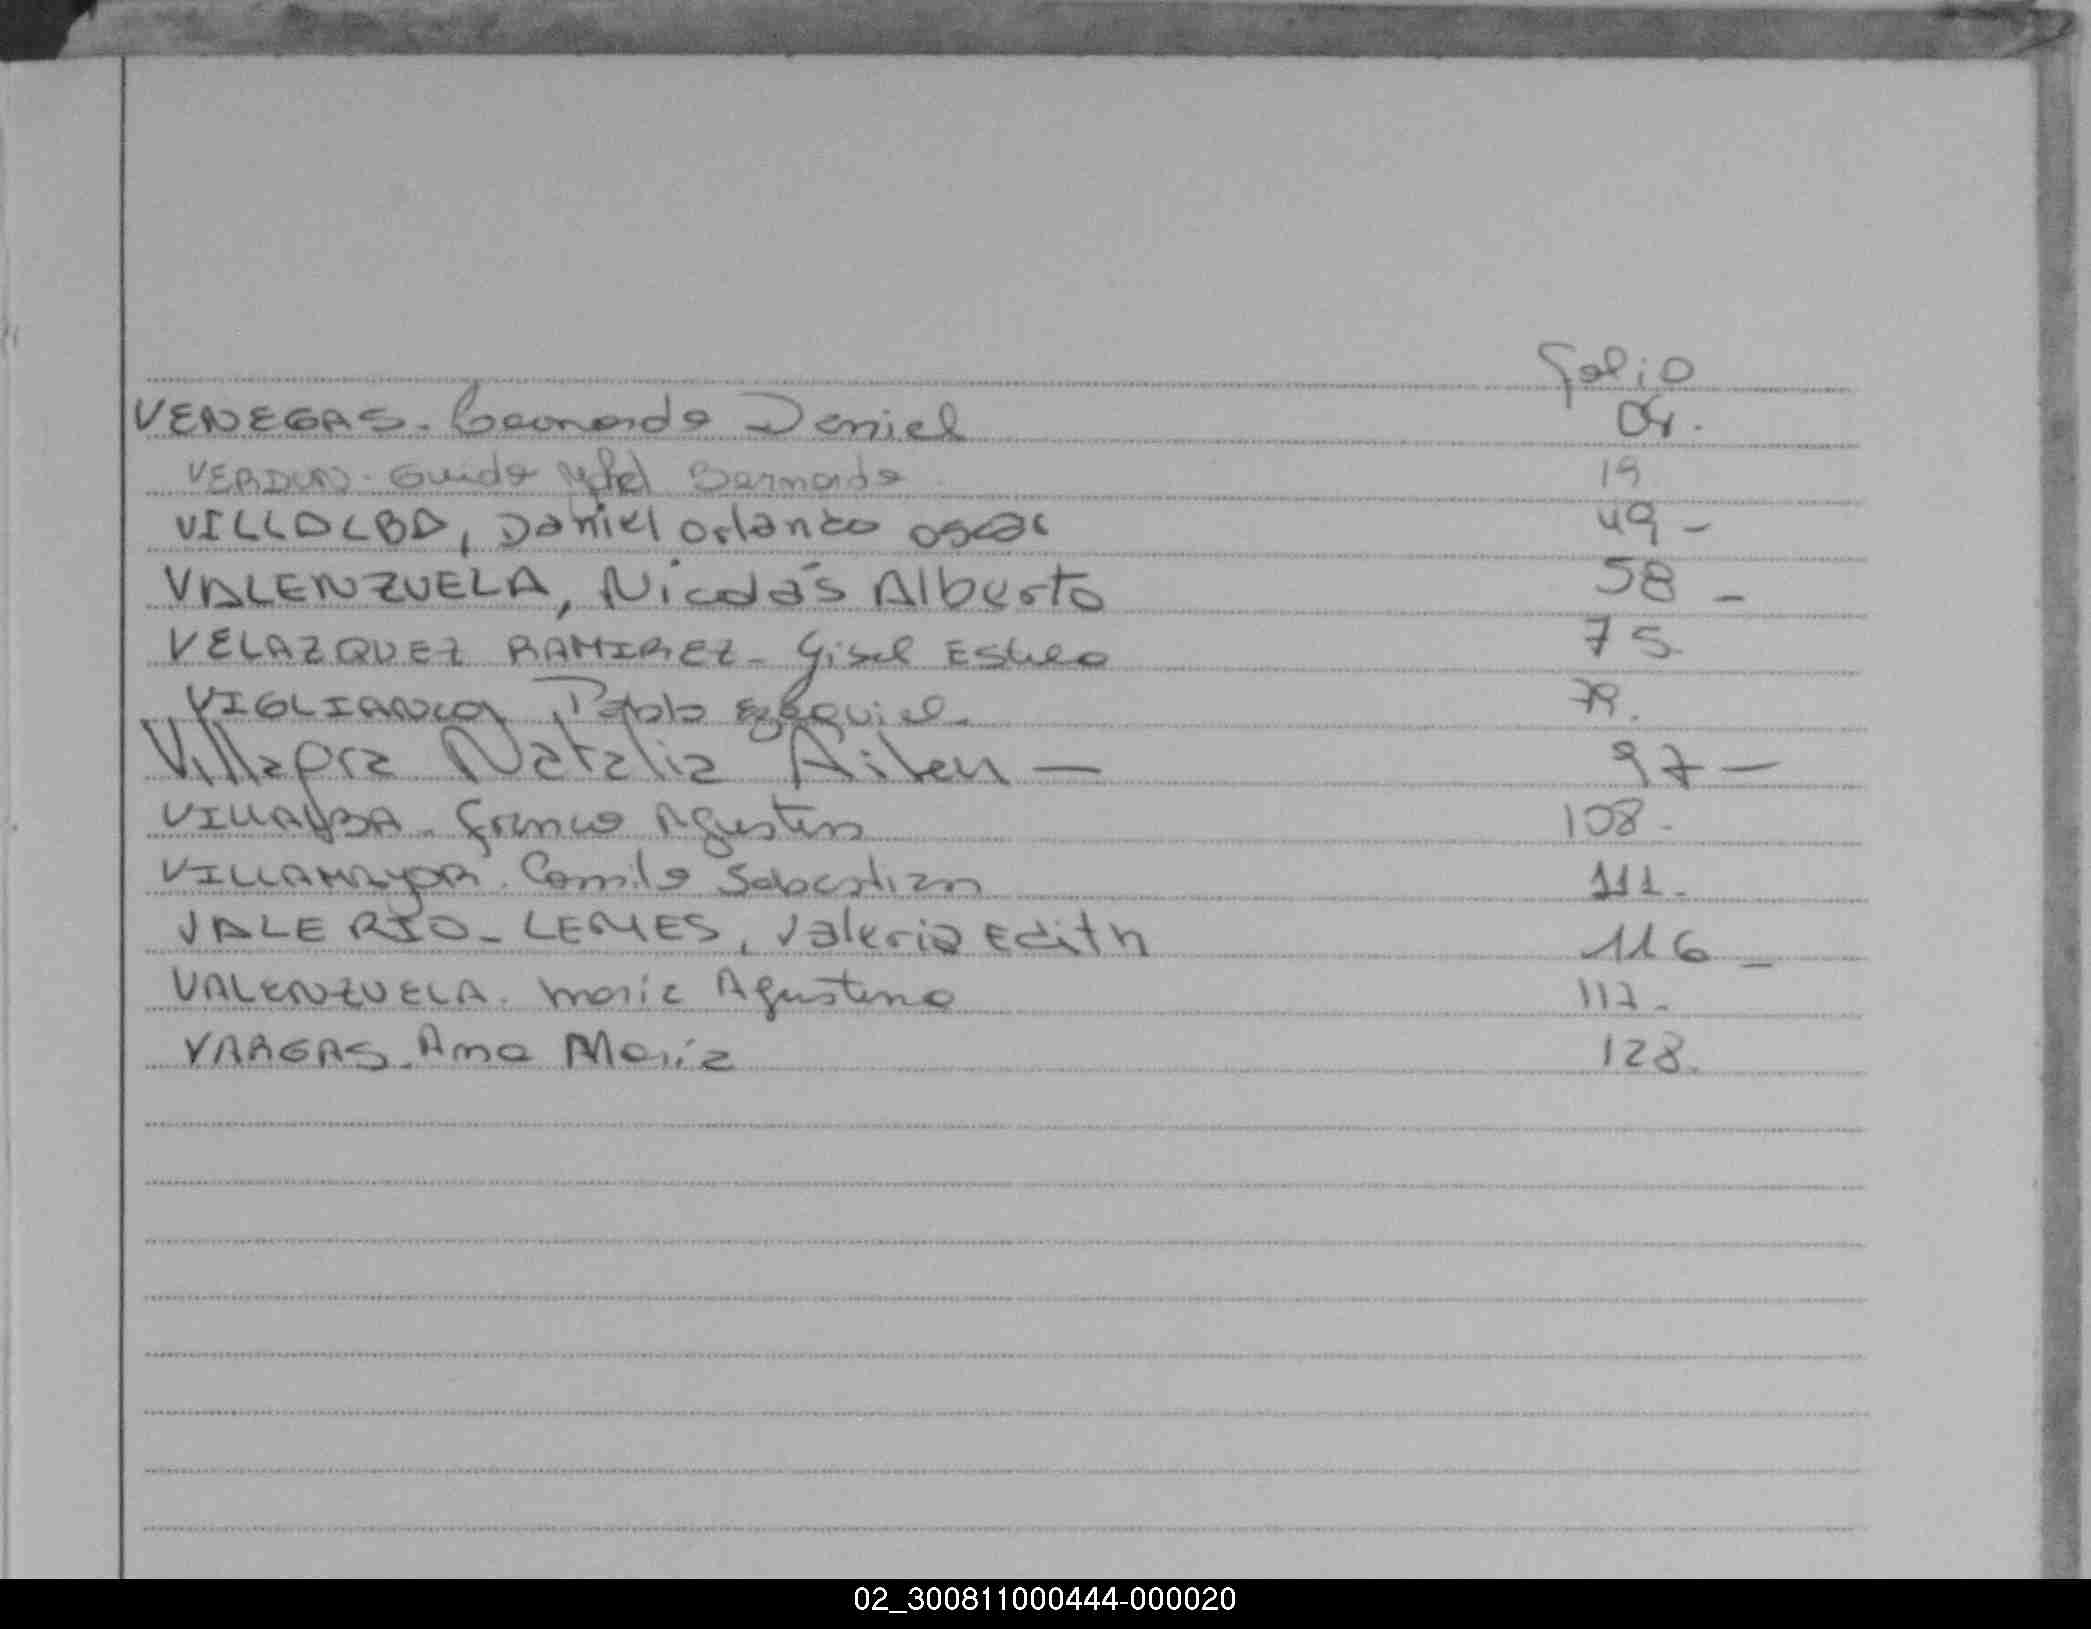 Folio
VENEGAS. Leonardo Daniel 04.
VERDUN. Guido Bernardo 19
VILLALBA, Daniel Orlando Oscar 49-
VALENZUELA, Nicolás Alberto 58 -
VELAZQUEZ RAMIREZ - Gisel Esheo 75.
VIGLIANCO, Pablo Ezequiel. 79.
Villafra Natalia Ailen — 97 —
VILLALBA. Franco Agustin 108.
VILLAMAYOR. Camilo Sebastian 111.
VALERIO - LEMES, Valeria Edith 116 -
VALENZUELA. Maria Agustina 117.
VARGAS. Ana Maria 128.
02_300811000444-000020